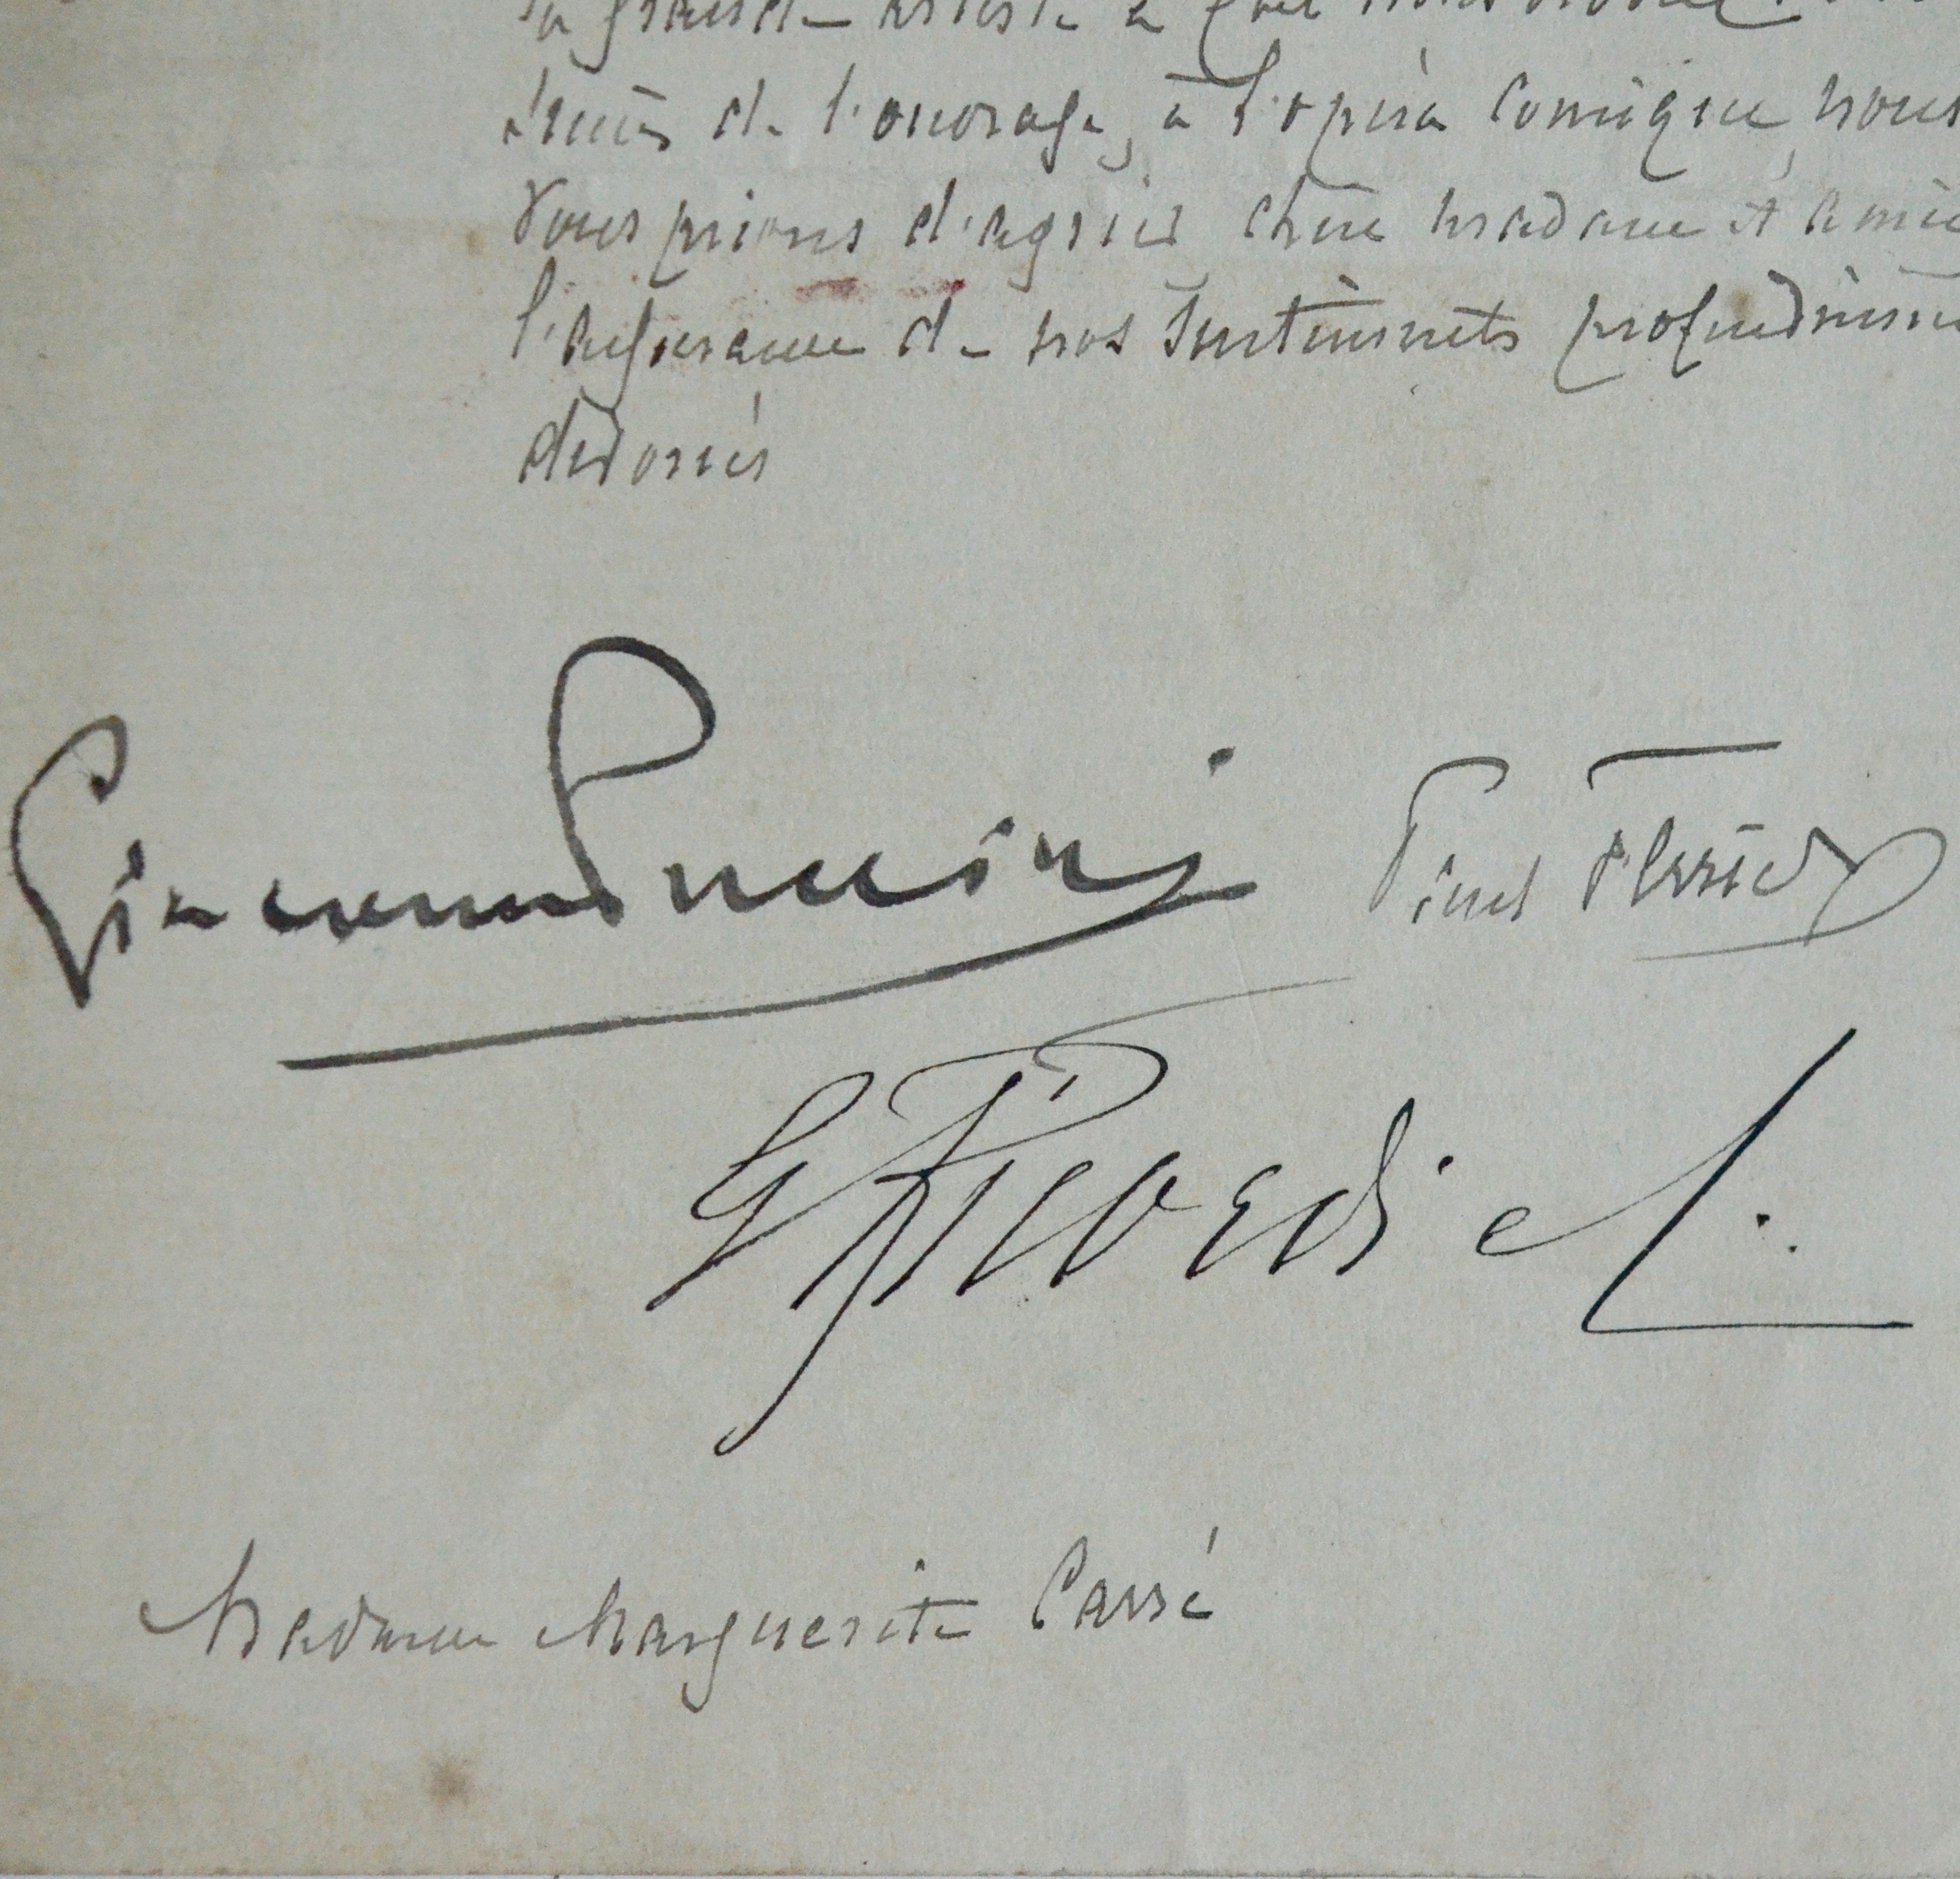 la grande artiste à qui nous devons
succès de l'ouvrage, à l'opéra comique, nous
vous prions d'agréer chère madame et amie
l'assurance de nos sentiments profondément
dévoués
Giacomo Puccini Paul Ferrier
G Ricordi e C.
Madame Marguerite Carré